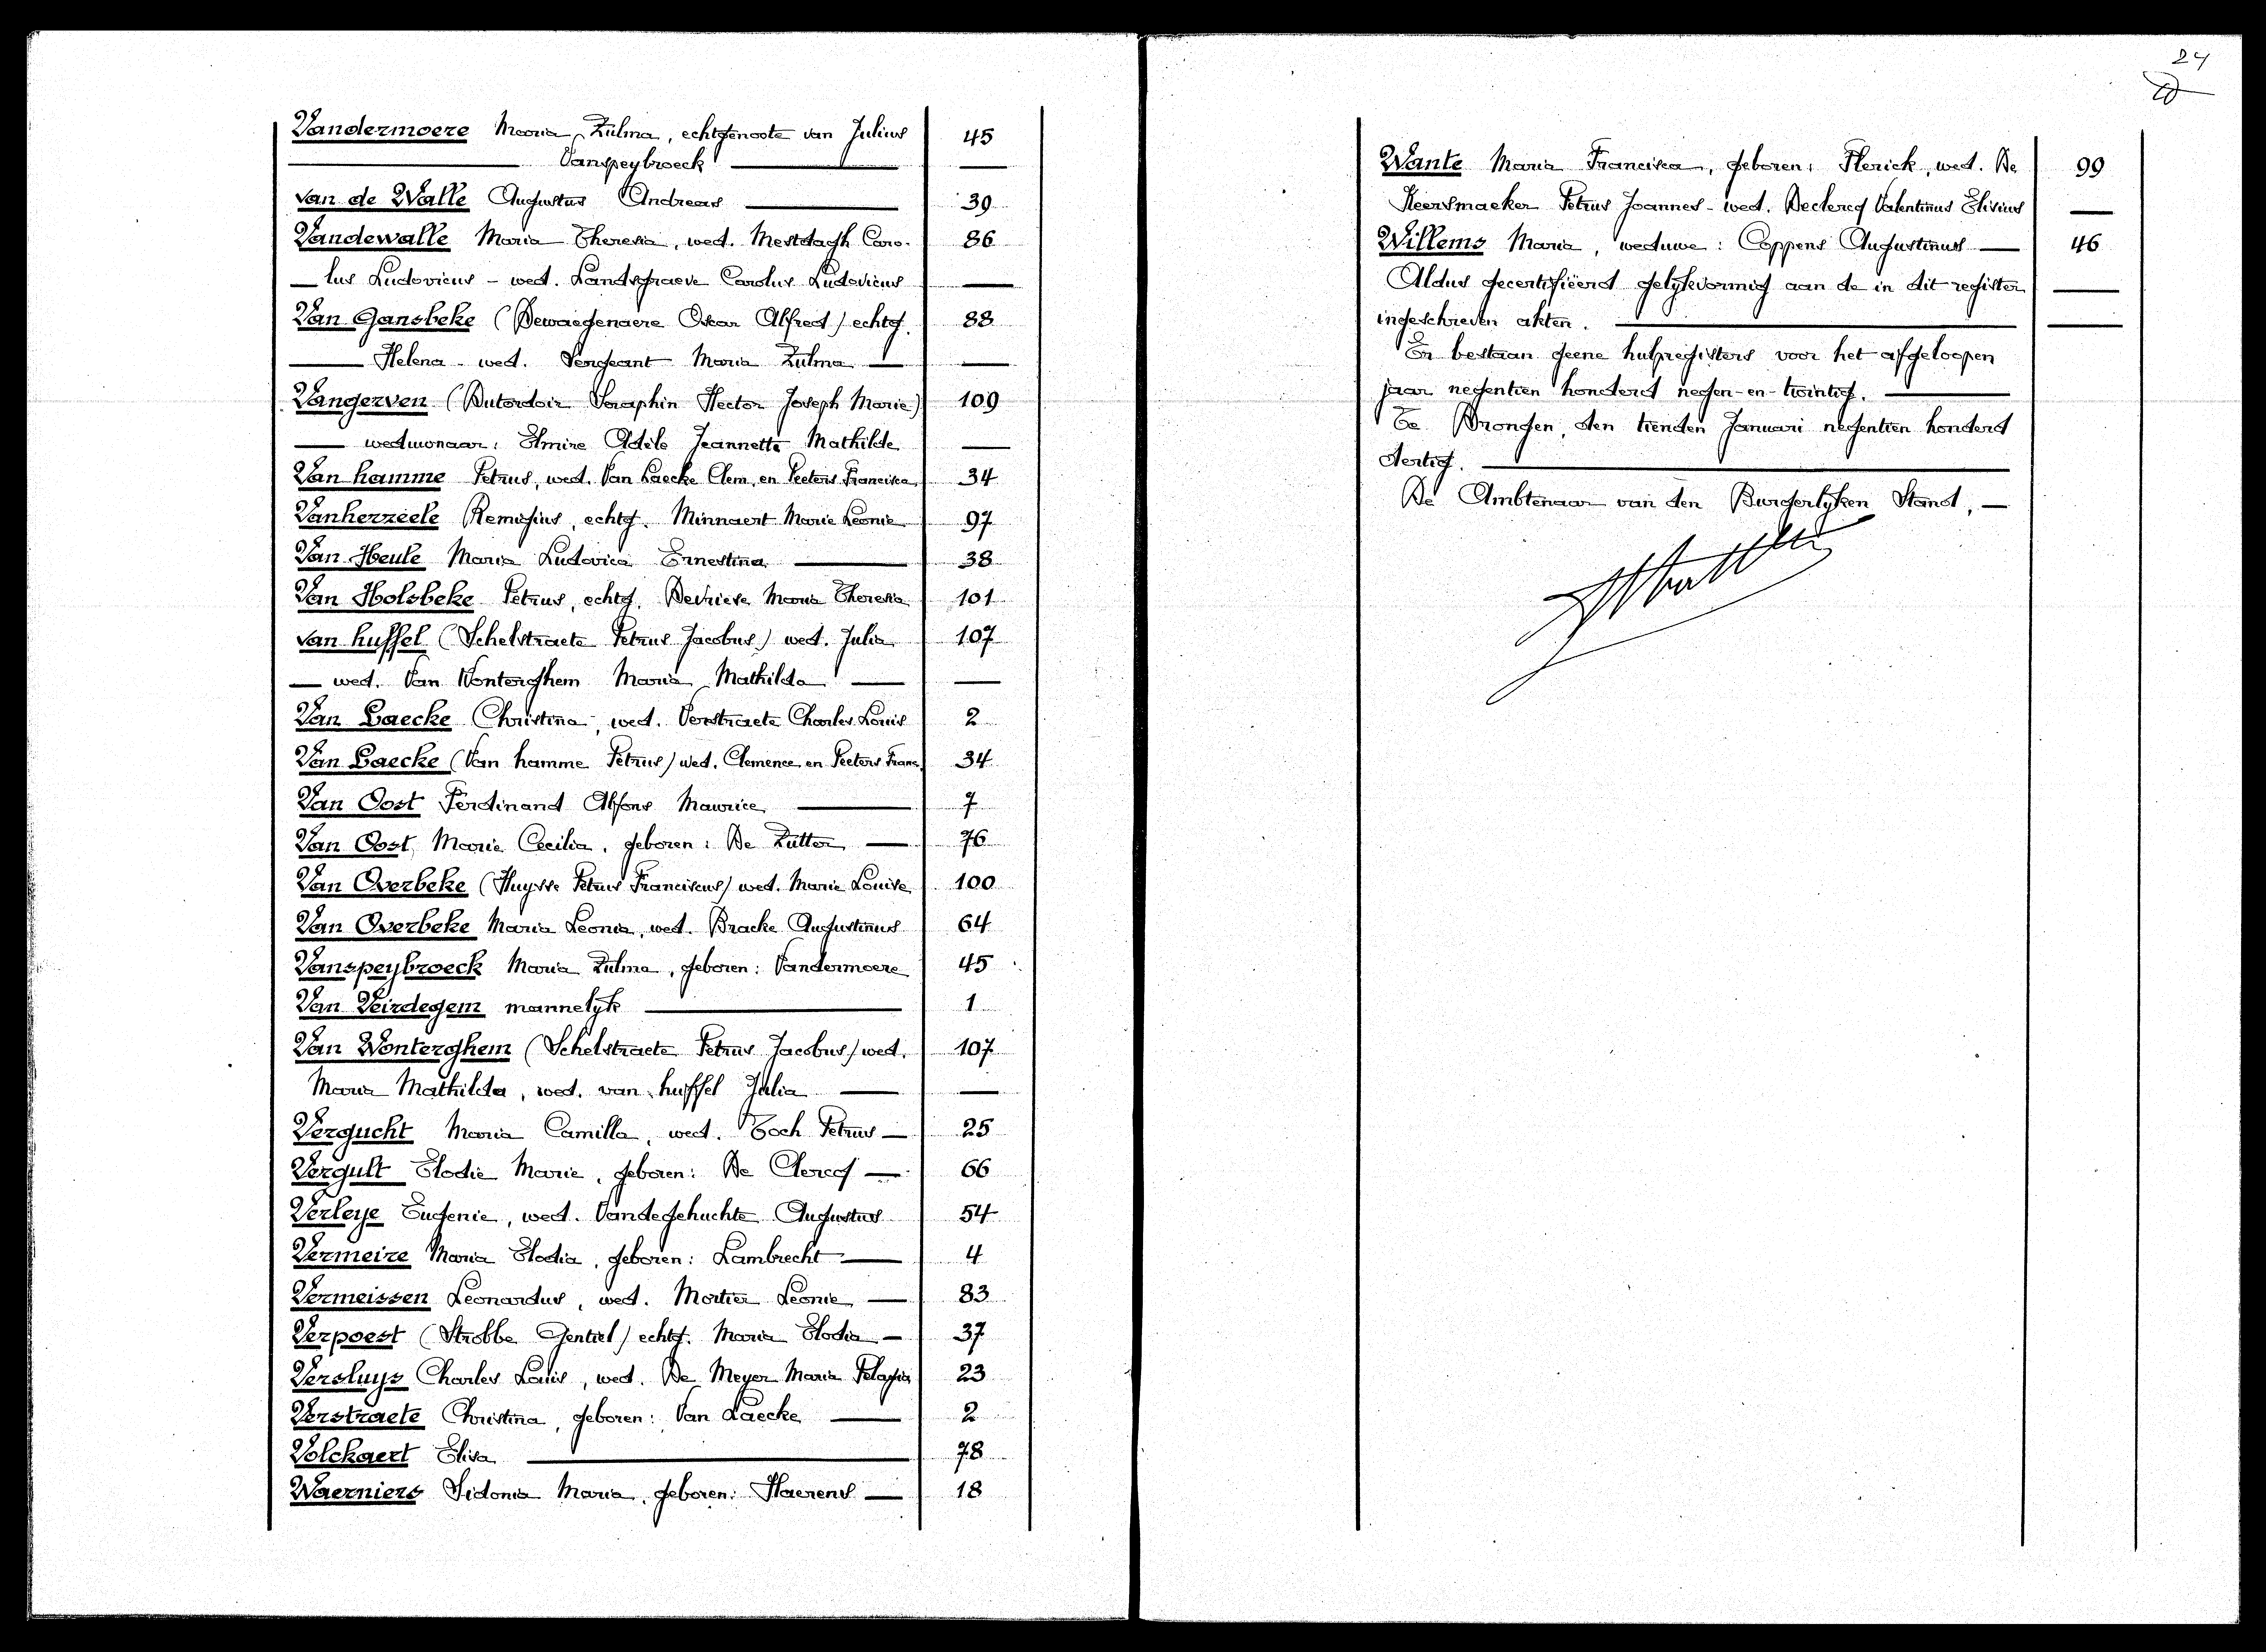 Vandermoere Maria Zulma, echtgenoote van Julius 45
Vanspeybroeck
van de Walle Augustus Andreas 39
Vandewalle Maria Theresia, wed. Mestdagh Caro- 86
lus Ludovicus - wed. Landsgraeve Carolus Ludovicus
Van Gansbeke (Dewaegenaere Oscar Alfred) echtg. 88
Helena - wed. Sergeant Maria Zulma
Vangerven (Dutordoir Seraphin Hector Joseph Marie) 109
weduwnaar: Elmire Adèle Jeannette Mathilde
Van hamme Petrus, wed. Van Laecke Clem. en Peeters Francisca 34
Vanherzeele Remigius, echtg. Minnaert Marie Leonie 97
Van Heule Maria Ludovica Ernestina 38
Van Holsbeke Petrus, echtg. Devriese Maria Theresia 101
van huffel (Schelstraete Petrus Jacobus) wed. Julia 107
wed. Van Wonterghem Maria Mathilda
Van Laecke Christina, wed. Verstraete Charles Louis 2
Van Laecke (Van hamme Petrus) wed. Clemence en Peeters Franc. 34
Van Oost Ferdinand Alfons Maurice 7
Van Oost, Marie Cecilia, geboren: De Zutter 76
Van Overbeke (Huysse Petrus Franciscus) wed. Marie Louise 100
Van Overbeke Maria Leonia, wed. Bracke Augustinus 64
Vanspeybroeck Maria Zulma, geboren: Vandermoere 45
Van Veirdegem mannelyk 1
Van Wonterghem (Schelstraete Petrus Jacobus) wed. 107
Maria Mathilda, wed. van huffel Julia
Vergucht Maria Camilla, wed. Toch Petrus 25
Vergult Elodie Marie, geboren: De Clercq 66
Verleye Eugenie, wed. Vandegehuchte Augustus 54
Vermeire Maria Elodia, geboren: Lambrecht 4
Vermeissen Leonardus, wed. Mortier Leonie 83
Verpoest (Strobbe Gentiel) echtg. Maria Elodia 37
Versluys Charles Louis, wed. De Meyer Maria Pelagia 23
Verstraete Christina, geboren: Van Laecke 2
Volckaert Elisa 78
Waerniers Sidonia Maria, geboren: Haerens 18
24
Wante Maria Francisca, geboren: Flerick, wed. De 99
Keersmaeker Petrus Joannes - wed. Declercq Valentinus Elisius
Willems Maria, weduwe: Coppens Augustinus 46
Aldus gecertifiëerd gelykvormig aan de in dit register
ingeschreven akten.
Er bestaan geene hulpregisters voor het afgeloopen
jaar negentien honderd negen-en-twintig.
Te Drongen, den tienden Januari negentien honderd
dertig.
De Ambtenaar van den Burgerlyken Stand,